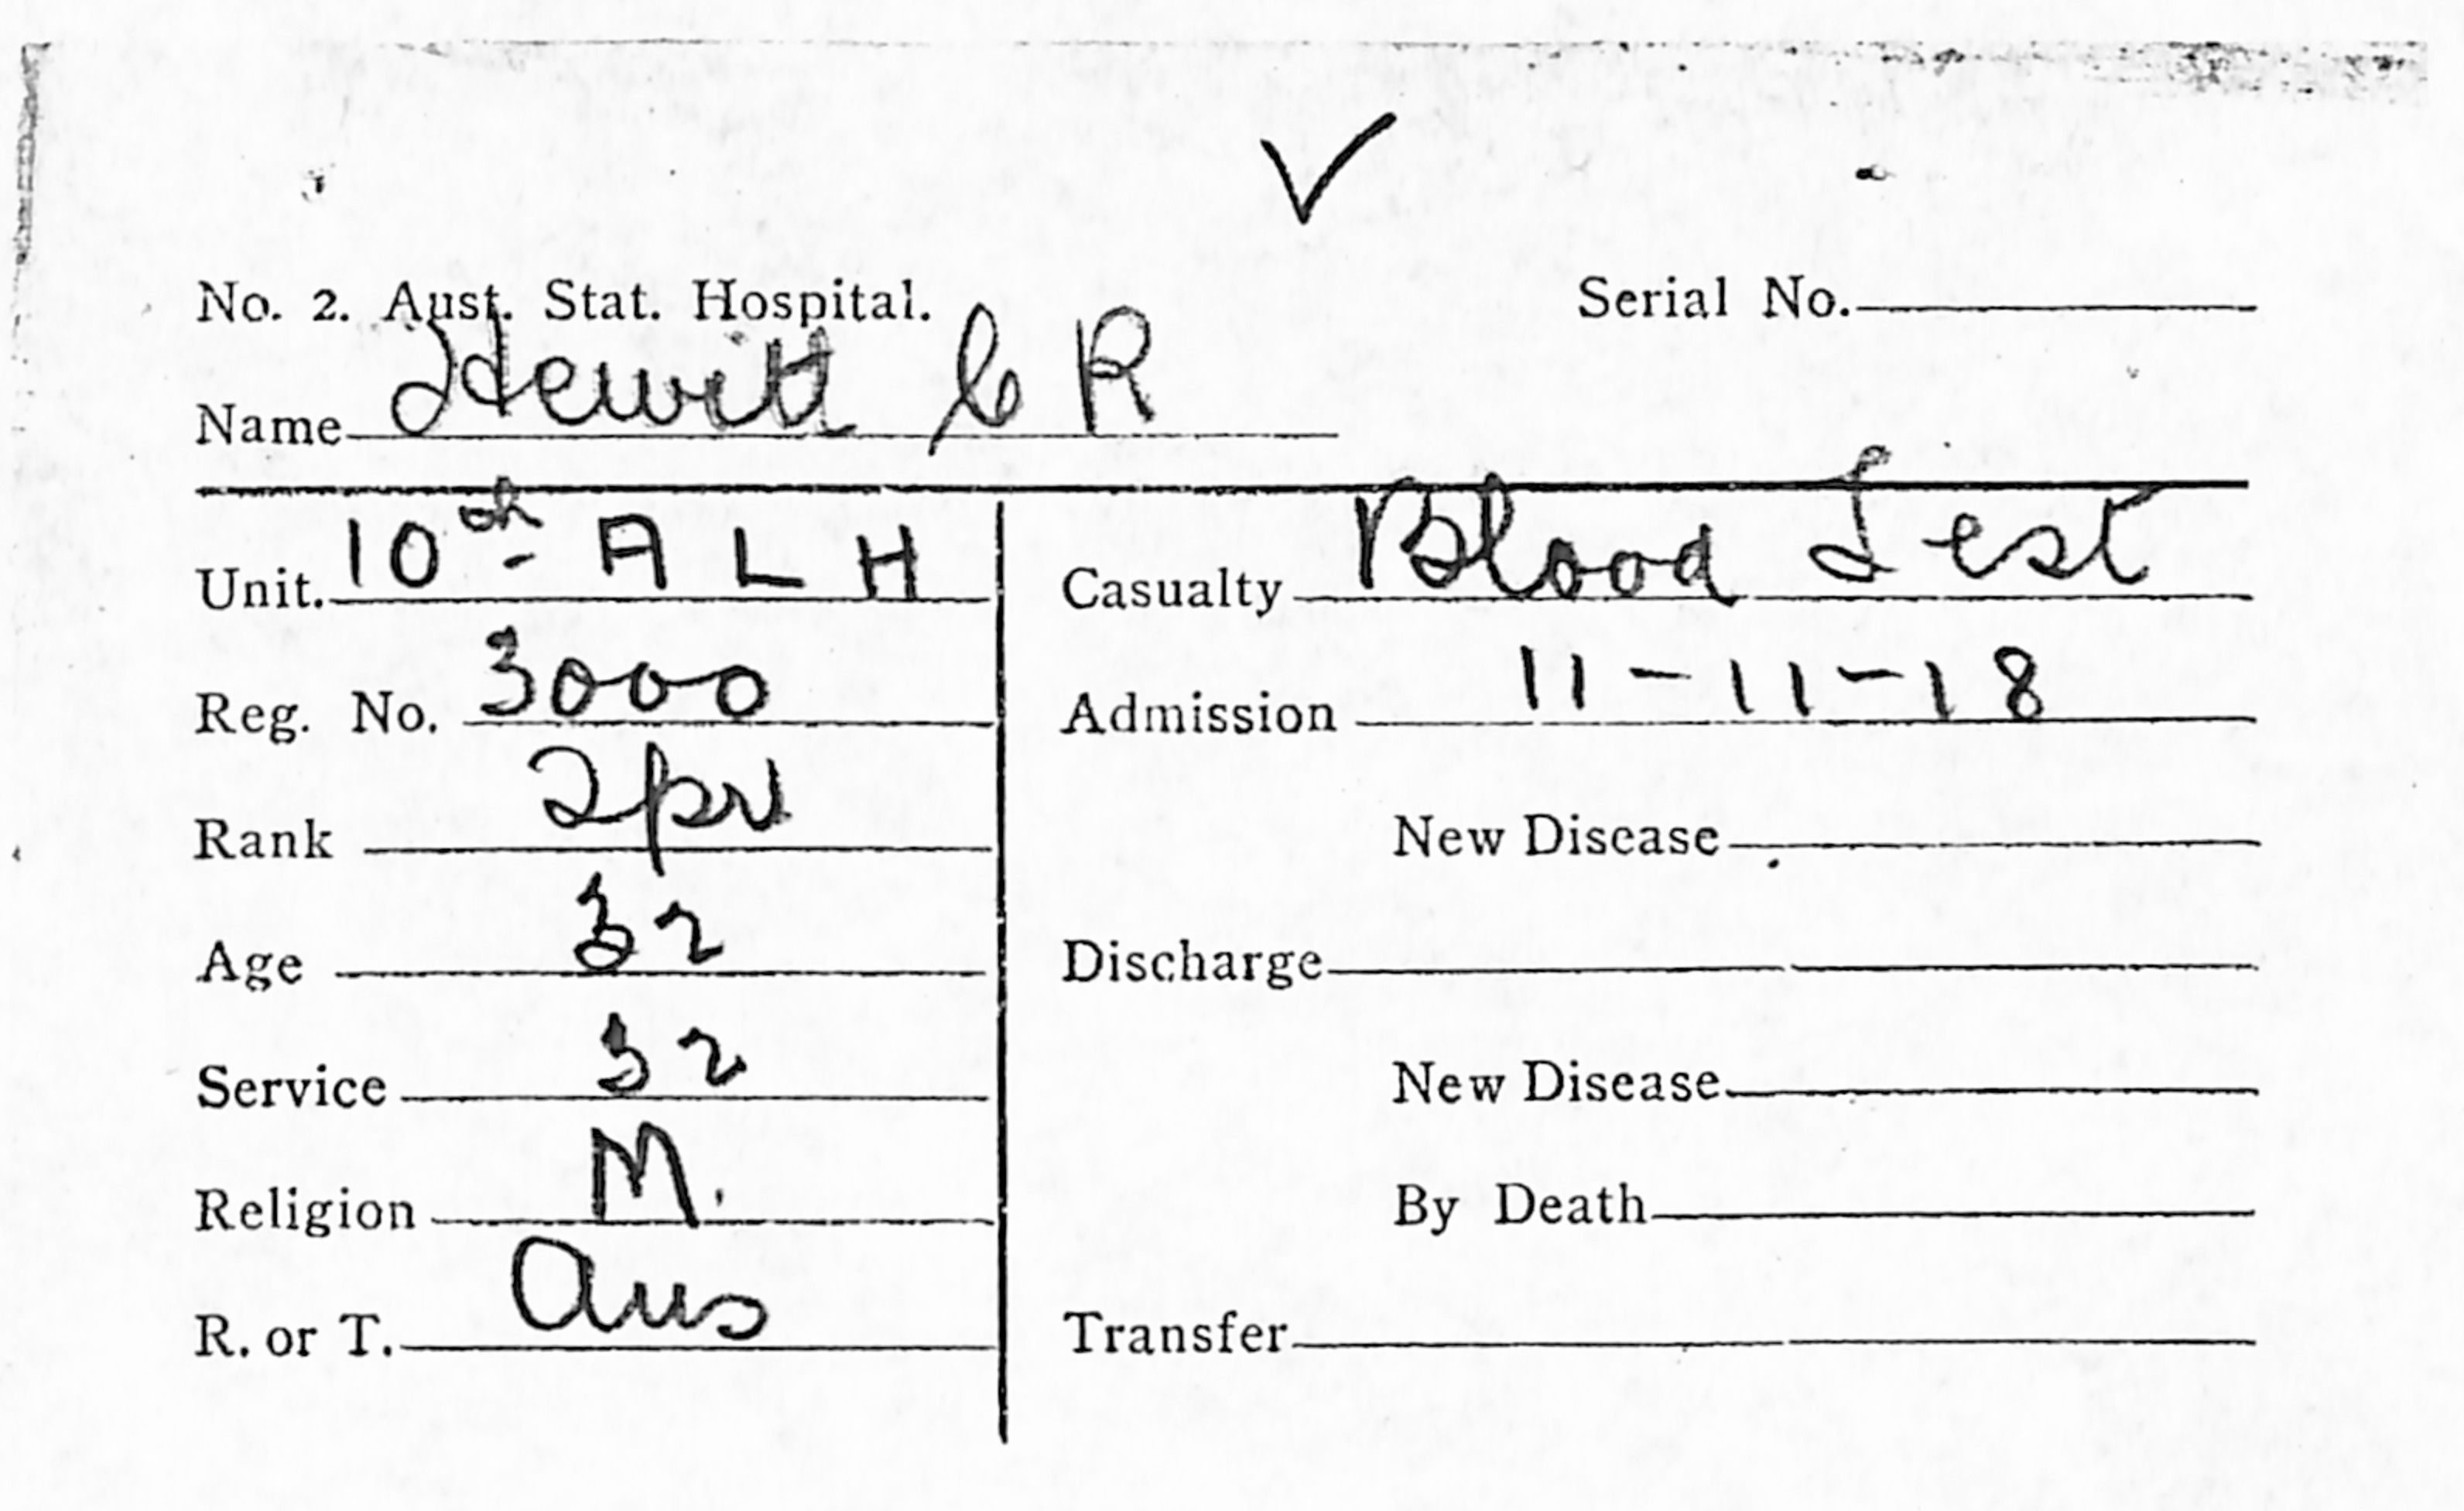 No. 2. Aust. Stat. Hospital. Serial No.
Name Hewitt C R
Unit. 10th A L H
Casualty Blood Test
Reg. No. 3000
Admission 11-11-18
Rank Tpr
New Disease
Age 32
Discharge
Service 32
New Disease
Religion M.
By Death
R. or T. Aus
Transfer